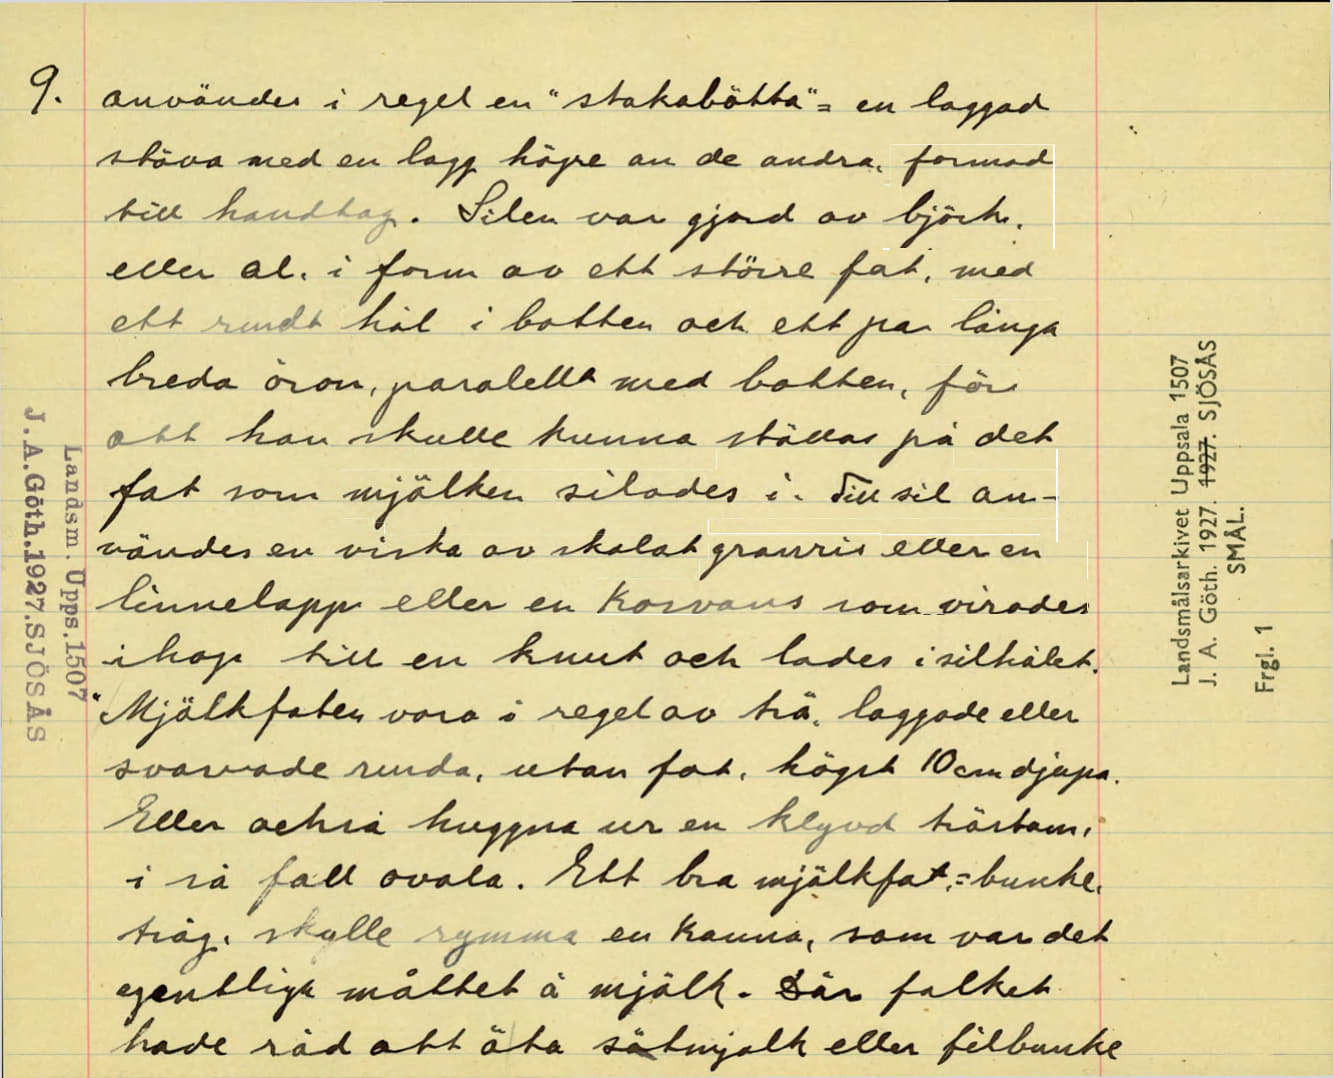 9.
användes i regel en "stakabötta" = en laggad
stäva med en lagg högre an de andra, formad
till handtag. Silen var gjord av björk,
eller al, i form av ett större fat, med
ett rundt hål i botten och ett par långa
breda öron, paralella med botten, för
att han skulle kunna ställas på det
fat som mjölken silades i. Till sil an-
vändes en viska av skalat granris eller en
linnelapp eller en kosvans som virades
ihop till en knut och lades i silhålet.
"Mjölkfaten vara i regel av trä, laggade eller
svarvade runda, utan fot, högst 10 cm djupa.
Eller också huggna ur en klyvd trästam,
i så fall ovala. Ett bra mjölkfat, = bunke,
tråg, skulle rymma en kanna, som var det
egentliga måttet å mjölk. Där folket
hade råd att äta sötmjolk eller filbunke
Landsm. Upps. 1507
J. A. Göth. 1927. SJÖSÅS
Landsmålsarkivet Uppsala 1507
J. A. Göth. 1927. SJÖSÅS
SMÅL.
Frgl. 1